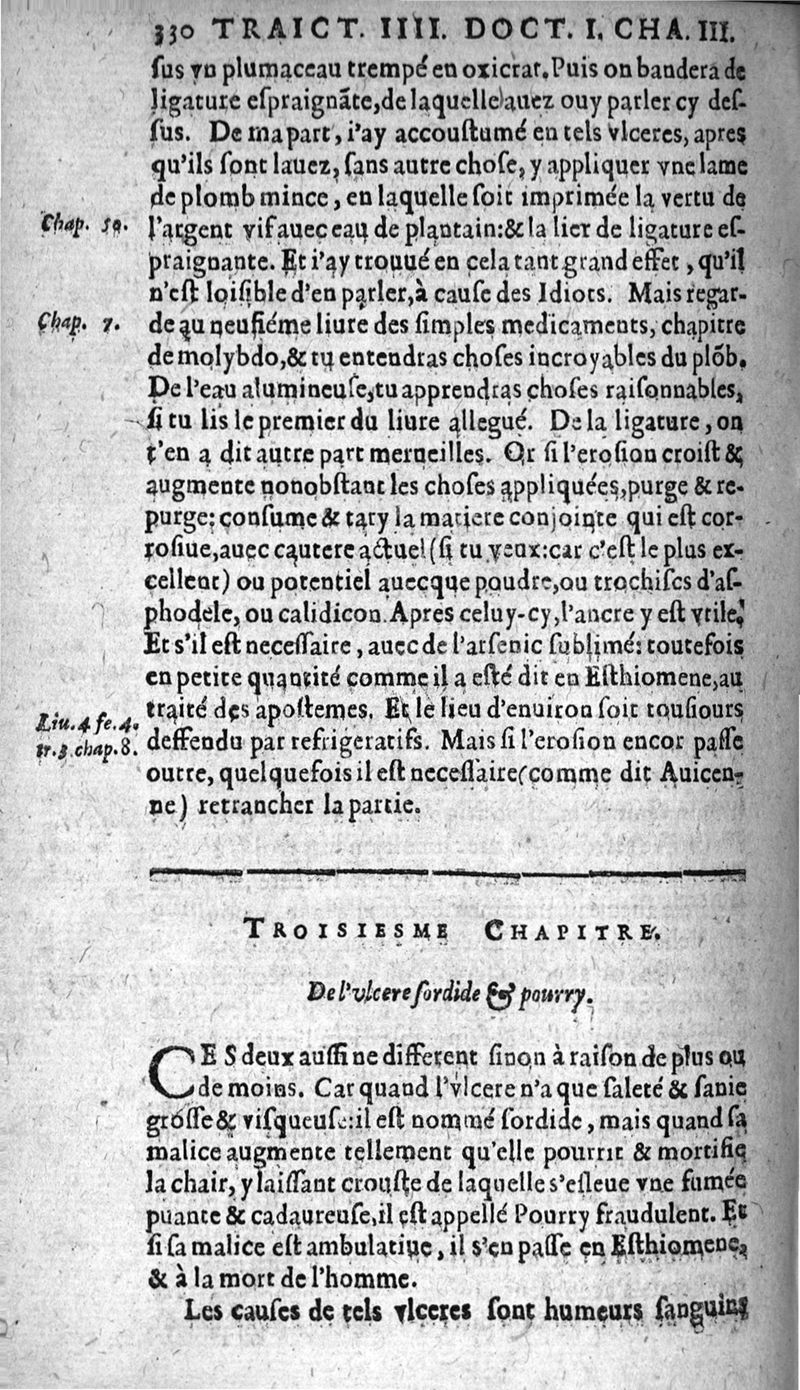 330 TRAICT. IIII. DOCT. I. CHA. III.
ſus vn plumaceau trempé en oxicrat. Puis on bandera de
ligature eſpraignãte, de laquelle auez ouy parler cy deſ-
ſus. De ma part, i'ay accouſtumé en tels vlceres, apres
qu'ils ſont lauez, ſans autre choſe, y appliquer vne lame
de plomb mince, en laquelle ſoit imprimée la vertu de
Chap. 59.
l'argent vif auec eau de plantain: & la lier de ligature eſ-
praignante. Et i'ay trouué en cela tant grand effet, qu'il
n'eſt loiſible d'en parler, à cauſe des Idiots. Mais regar-
Chap. 7.
de au neufiéme liure des ſimples medicaments, chapitre
de molybdo, & tu entendras choſes incroyables du plõb.
De l'eau alumineuſe, tu apprendras choſes raiſonnables,
ſi tu lis le premier du liure allegué. De la ligature, on
t'en a dit autre part merueilles. Or ſi l'eroſion croiſt &
augmente nonobſtant les choſes appliquées, purge & re-
purge: conſume & tary la matiere conjointe qui eſt cor-
roſiue, auec cautere actuel (ſi tu veux: car c'eſt le plus ex-
cellent) ou potentiel auecque poudre, ou trochiſcs d'aſ-
phodele, ou calidicon. Apres celuy-cy, l'ancre y eſt vtile.
Et s'il eſt neceſſaire, auec de l'arſenic ſublimé: toutefois
en petite quantité comme il a eſté dit en Eſthiomene, au
traité des apoſtemes. Et le lieu d'enuiron ſoit touſiours
Liu. 4 fe. 4.
tr. 3 chap. 8.
deffendu par refrigeratifs. Mais ſi l'eroſion encor paſſe
outre, quelquefois il eſt neceſſaire (comme dit Auicen-
ne) retrancher la partie.
TROISIESME CHAPITRE.
De l'vlcere ſordide & pourry.
CES deux auſſi ne different ſinon à raiſon de plus ou
de moins. Car quand l'vlcere n'a que ſaleté & ſanie
groſſe & viſqueuſe: il eſt nommé ſordide, mais quand ſa
malice augmente tellement qu'elle pourrit & mortifie
la chair, y laiſſant crouſte de laquelle s'eſleue vne fumée
puante & cadauereuſe, il eſt appellé Pourry fraudulent. Et
ſi ſa malice eſt ambulatiue, il s'en paſſe en Eſthiomene,
& à la mort de l'homme.
Les cauſes de tels vlceres ſont humeurs ſanguins